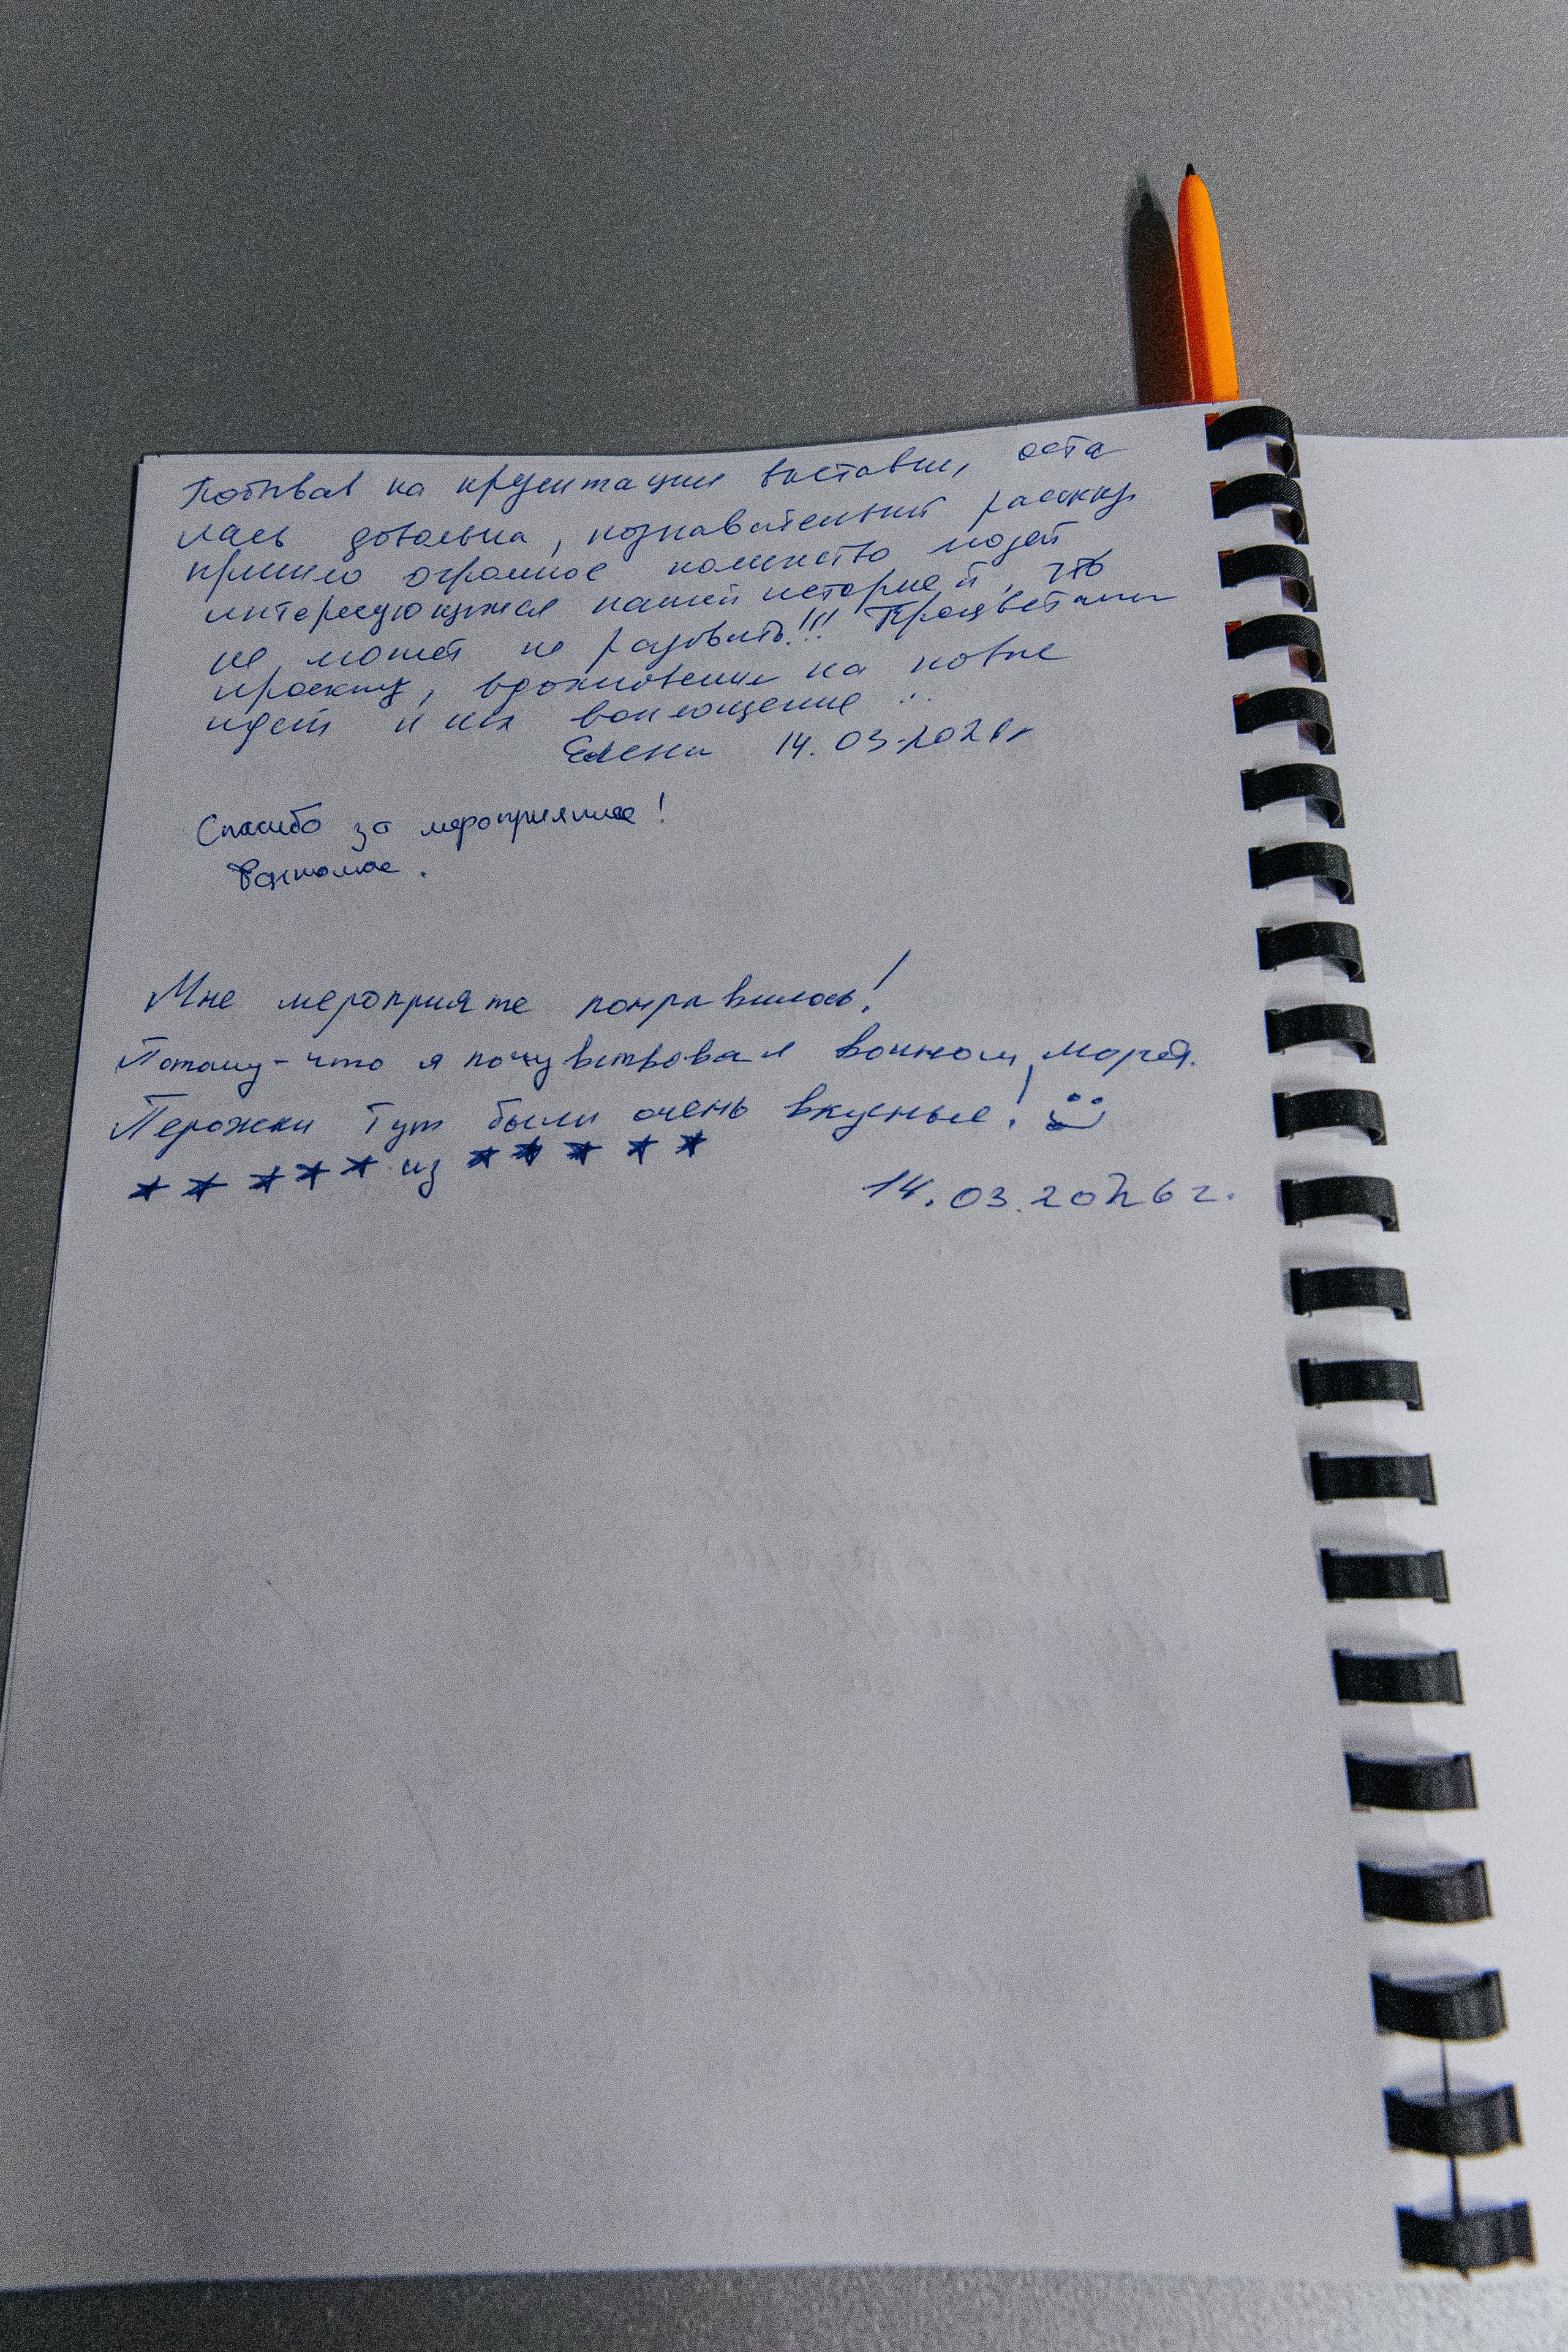 Побывал на презентации выставки, оста
лась довольна, познавательный рассказ
пришло огромное количество людей
интересующихся нашей историей, что
не может не радовать!!! Процветания
проекту, вдохновения на новые
идеи и их воплощение
Елена 14.03.2026г
Спасибо за мероприятие!
Мне мероприяте понравилось!
Потому-что я почувствовал воином, моряя.
Перожки тут были очень вкусные!
★ ★ ★ ★ ★ из ★ ★ ★ ★ ★
14.03.2026г.